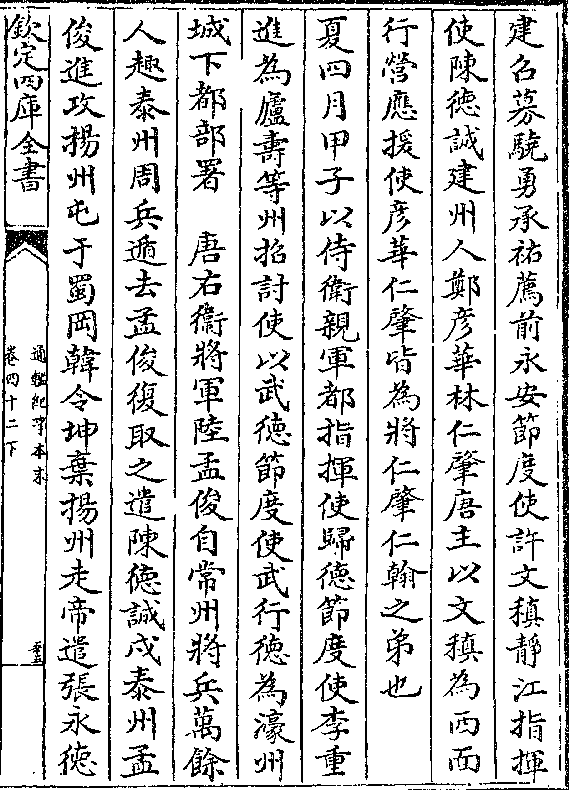 建召募驍勇承祐薦前永安節度使許文稹靜江指揮
使陳德誠建州人鄭彥華林仁肇唐主以文稹為西面
行營應援使彥華仁肇皆為將仁肇仁翰之弟也
夏四月甲子以侍衛親軍都指揮使歸德節度使李重
進為廬壽等州招討使以武德節度使武行德為濠州
城下都部署　唐右衛將軍陸孟俊自常州將兵萬餘
人趣泰州周兵遁去孟俊復取之遣陳德誠戍泰州孟
俊進攻揚州屯于蜀岡韓令坤棄揚州走帝遣張永徳
欽定四庫全書
通鑑紀事本末
卷四十二下